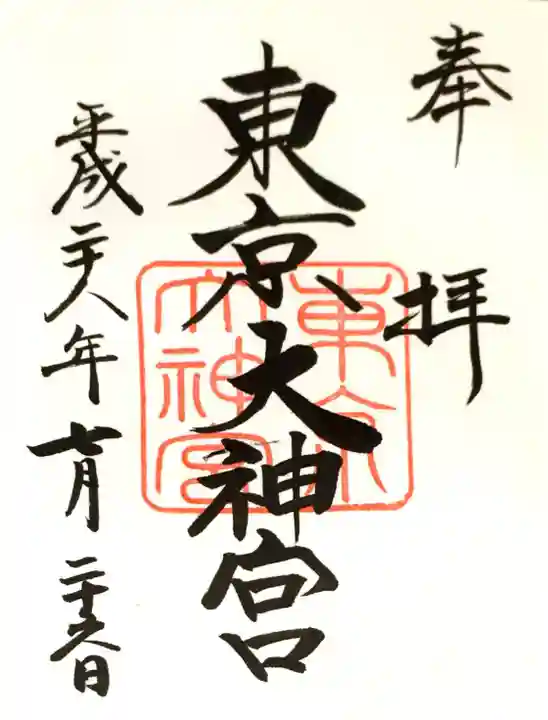 奉拝
東京大神宮
東京大神宮
平成二十八年七月二十六日